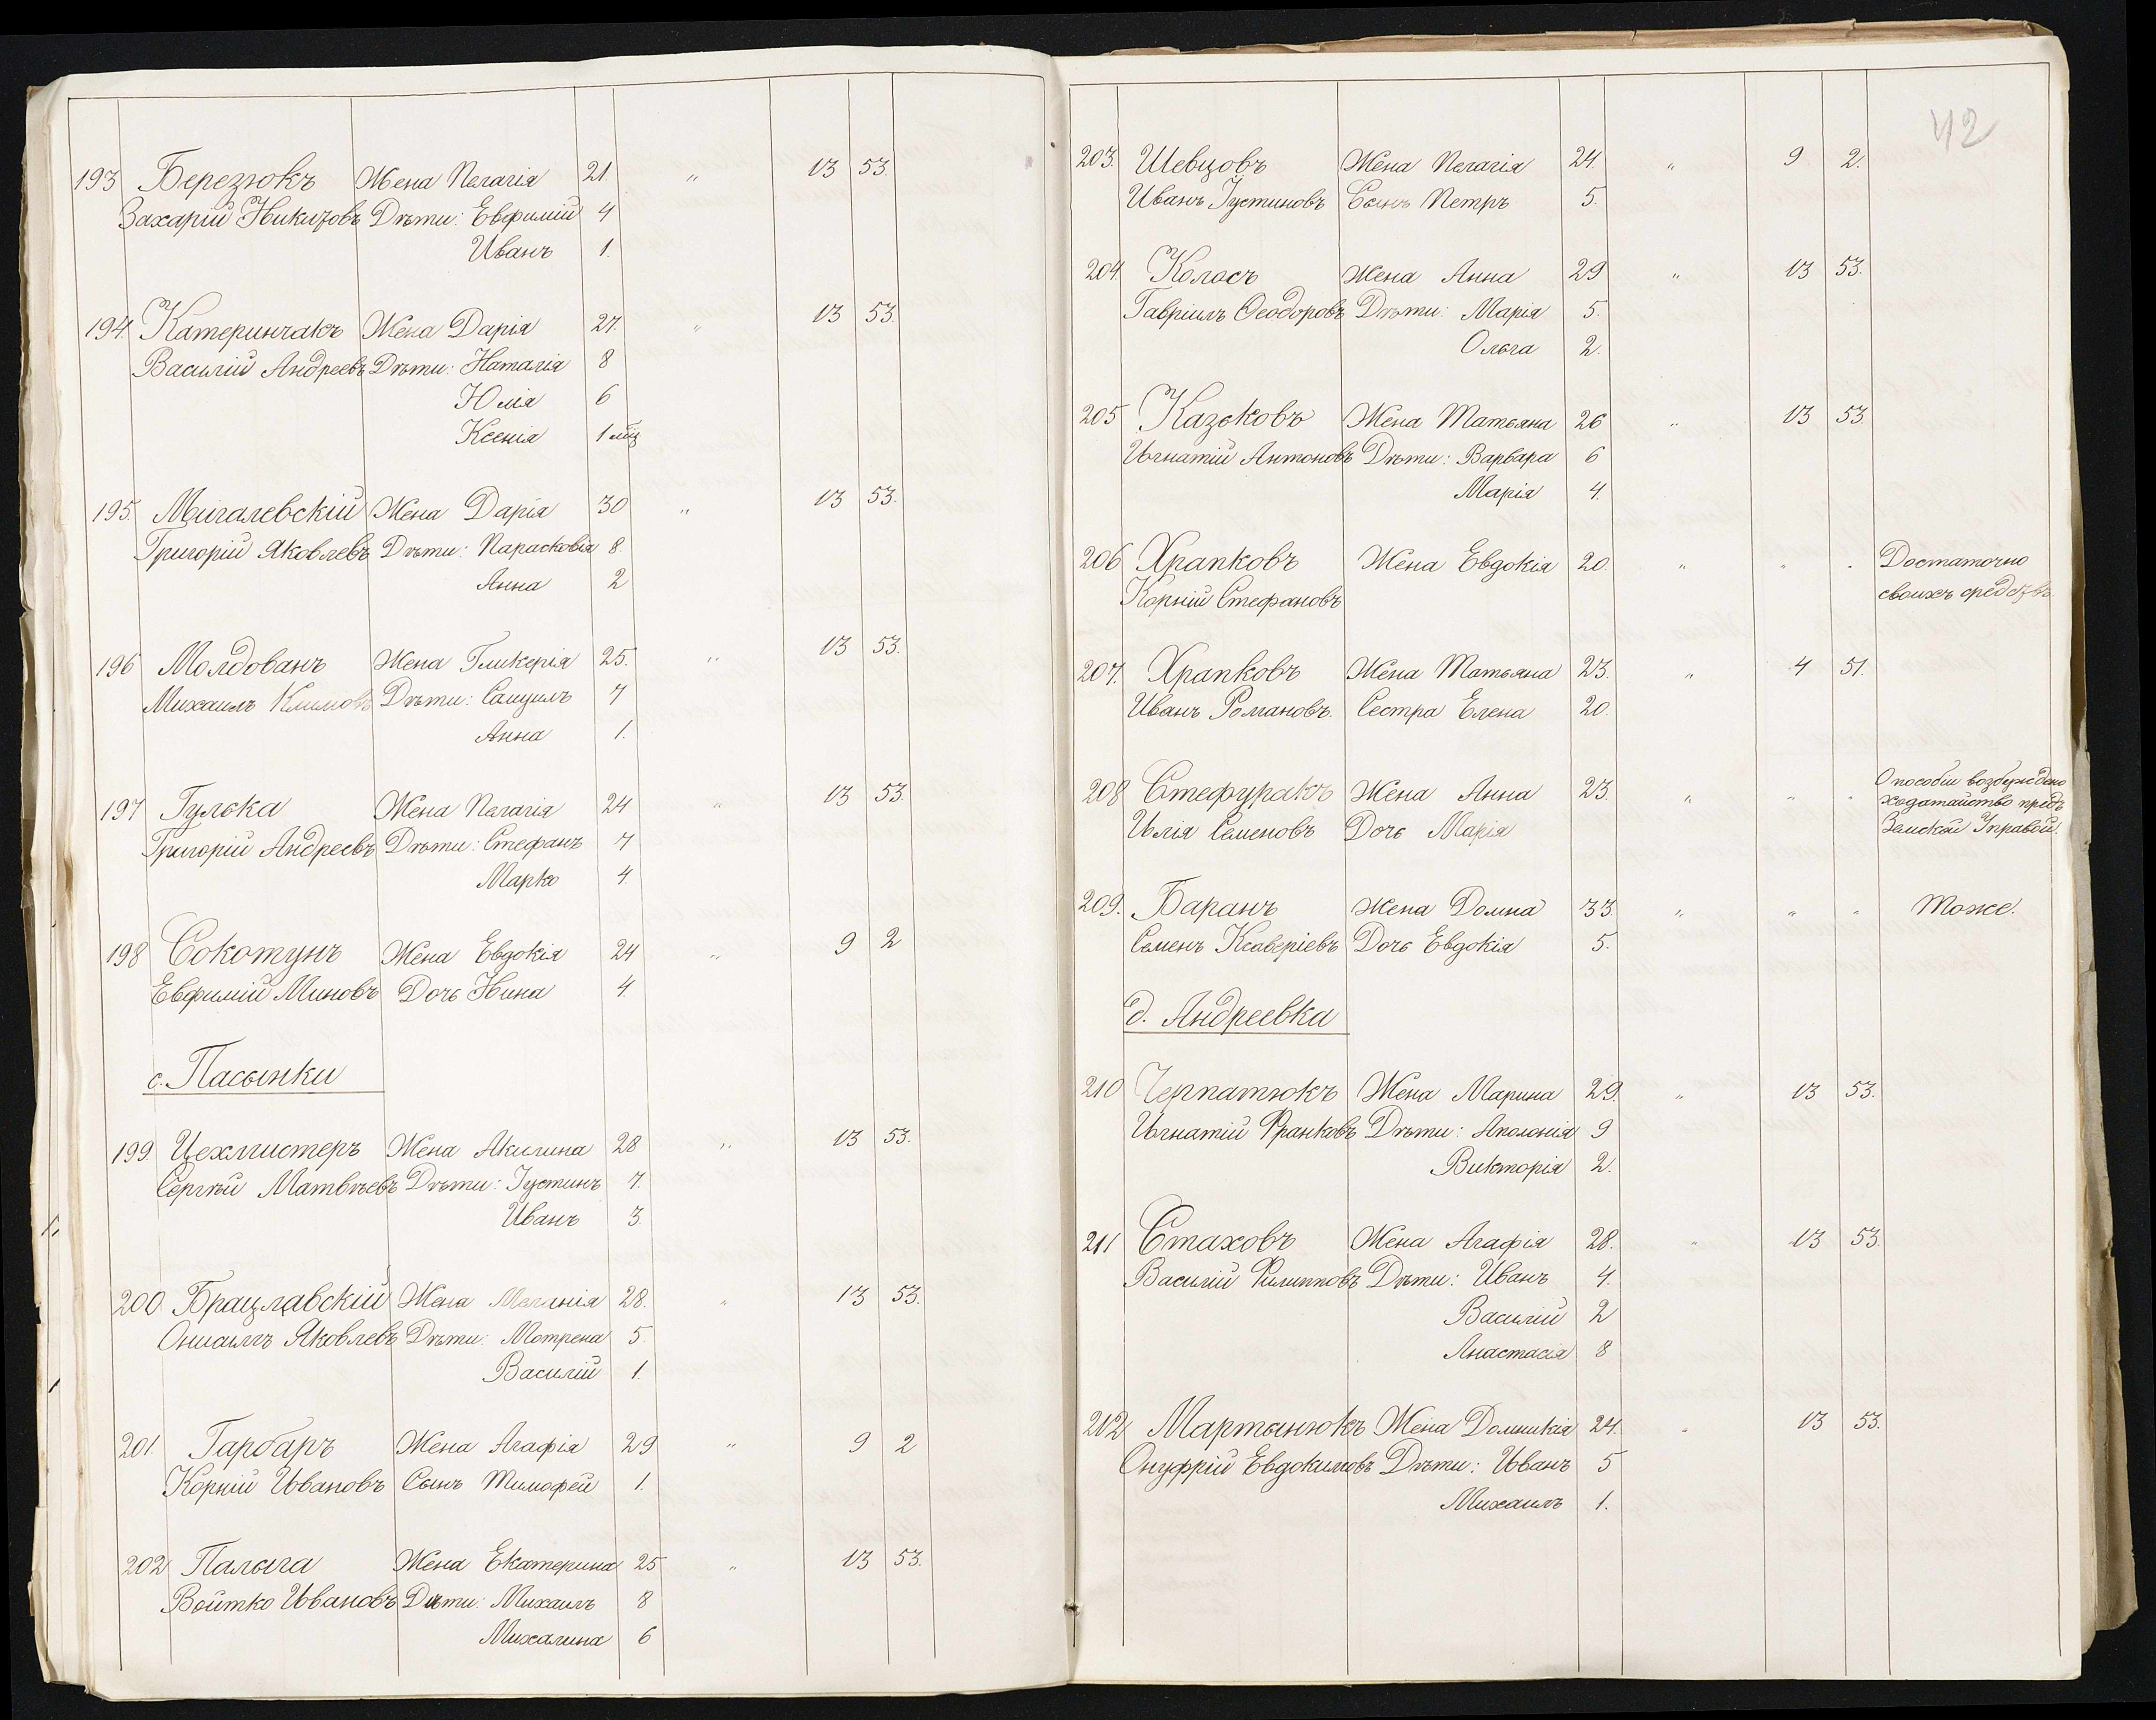 193 Березюкъ Жена Пелагія 21. " 13 53.
Захарій Никитовъ Дѣти: Евфимій 4
Иванъ 1.
194. Катеринчакъ Жена Дарія 27. " 13 53.
Василій Андреевъ Дѣти: Наталія 8
Юлія 6
Ксенія 1 мѣс
195. Мигалевскій Жена Дарія 30 " 13 53.
Григорій Яковлевъ Дѣти: Парасковія 8.
Анна 2
196 Молдованъ Жена Гликерія 25. " 13 53.
Михаилъ Климовъ Дѣти: Самуилъ 7
Анна 1.
197 Гулька Жена Пелагія 24 " 13 53.
Григорій Андреевъ Дѣти: Стефанъ 7
Марко 4.
198 Сокотунъ Жена Евдокія 24 " 9 2
Евфимій Миновъ Дочь Нина 4.
с. Пасынки
199. Цехмистеръ Жена Акилина 28 " 13 53.
Сергѣй Матвѣевъ Дѣти: Іустинъ 7.
Иванъ 3.
200 Брацлавскій Жена Меланія 28. " 13 53.
Яковлевъ Дѣти: Мотрена 5.
Василій 1.
201. Гарбаръ Жена Агафія 29 " 9 2
Корній Ивановъ Сынъ Тимофей 1.
202 Палыга Жена Екатерина 25 " 13 53.
Войтко Ивановъ Дѣти: Михаилъ 8
Михалина 6
42
203. Шевцовъ Жена Пелагія 24. " 9 2.
Иванъ Іустиновъ Сынъ Петръ 5.
204. Колосъ Жена Анна 29 " 13 53.
Гавріилъ Ѳеодоровъ Дѣти: Марія 5.
Ольга 2.
205 Казьковъ Жена Татьяна 26 " 13 53.
Игнатій Антоновъ Дѣти: Варвара 6
Марія 4.
206 Храпковъ Жена Евдокія 20. " " " Достаточно
Корній Стефановъ своихъ средствъ
207. Храпковъ Жена Татьяна 23. " 4 51.
Иванъ Романовъ. Сестра Елена 20.
208 Стефуракъ Жена Анна 23. " " " О пособіи возбуждено
ходатайство предъ
Илія Семеновъ Дочь Марія Земской Управой.
209. Баранъ Жена Домна 33. " " " Тоже.
Семенъ Ксаверіевъ Дочь Евдокія 5.
д. Андреевка
210 Черпатюкъ Жена Марина 29. " 13 53.
Игнатій Франковъ Дѣти: Аполонія 9
Викторія 2.
211 Стаховъ Жена Агафія 28. " 13 53.
Василій Филипповъ Дѣти: Иванъ 4.
Василій 2
Анастасія 8
212 Мартынюкъ Жена Домникія 24. " 13 53.
Онуфрій Евдокимовъ Дѣти: Иванъ 5
Михаилъ 1.